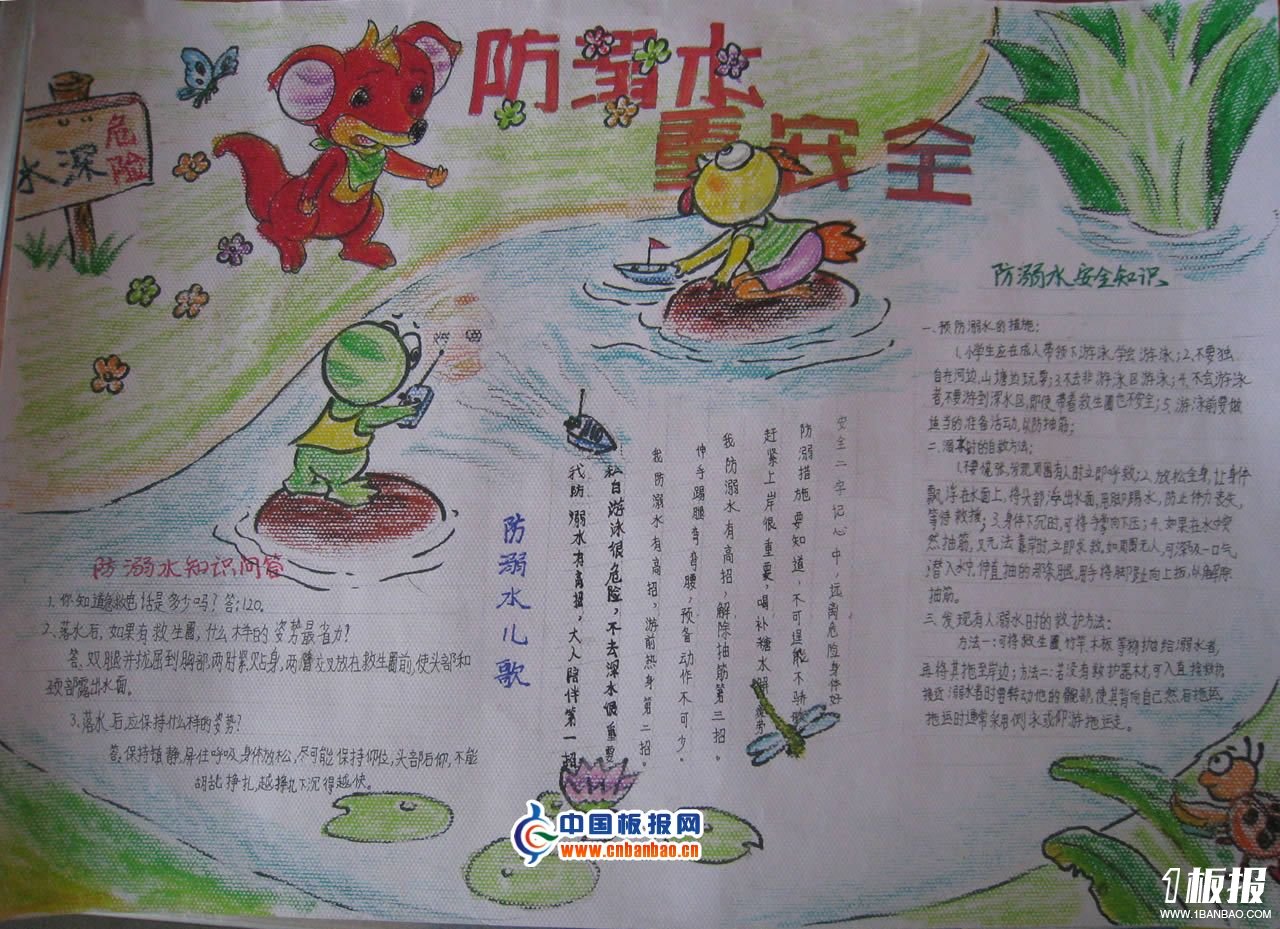 防溺水
重安全
水深
危险
防溺水知识问答
1. 你知道急救电话是多少吗？答：120。
2、落水后，如果有救生圈，什么样的姿势最省力？
答：双腿并拢屈到胸部，两肘紧贴身，两臂交叉放在救生圈前，使头部和
颈部露出水面。
3、落水后，应保持什么样的姿势？
答：保持镇静，屏住呼吸，身体放松，尽可能保持仰位，头部后仰，不能
胡乱挣扎，越挣扎下沉得越快。
防溺水儿歌
我防溺水有高招，大人陪伴第一招
私自游泳很危险，不去深水很重要
我防溺水有高招，游前热身第二招。
伸手踢腿弯弯腰，预备动作不可少。
我防溺水有高招，解除抽筋第三招。
赶紧上岸很重要，喝补糖水解疲劳
防溺措施要知道，不可逞能不骄傲
安全二字记心中，远离危险身体好
防溺水安全知识
一、预防溺水的措施：
1、小学生应在成人带领下游泳，学会游泳；2、不要独
自在河边、山塘边玩耍；3、不去非游泳区游泳；4、不会游泳
者，不要游到深水区，即使带着救生圈也不安全；5、游泳前要做
适当的准备活动，以防抽筋；
二、溺水时的自救方法：
1、不要慌张，发现周围有人时立即呼救；2、放松全身，让身体
飘浮在水面上，将头部浮出水面，用脚踢水，防止体力丧失，
等待救援；3、身体下沉时，可将手掌向下压；4、如果在水中突
然抽筋，又无法靠岸时，立即求救。如周围无人，可深吸一口气
潜入水中，伸直抽筋的那条腿，用手将脚趾向上扳，以解除
抽筋。
三、发现有人溺水时的救护方法：
方法一：可将救生圈、竹竿、木板等物抛给溺水者，
再将其拖至岸边；方法二：若没有救护器材，可入直接救护。
接近溺水者时要转动他的髋部，使其背向自己然后拖运。
拖运时通常采用侧泳或仰游拖运走。
中国板报网
www.cnbanbao.cn
1板报
WWW.1BANBAO.COM